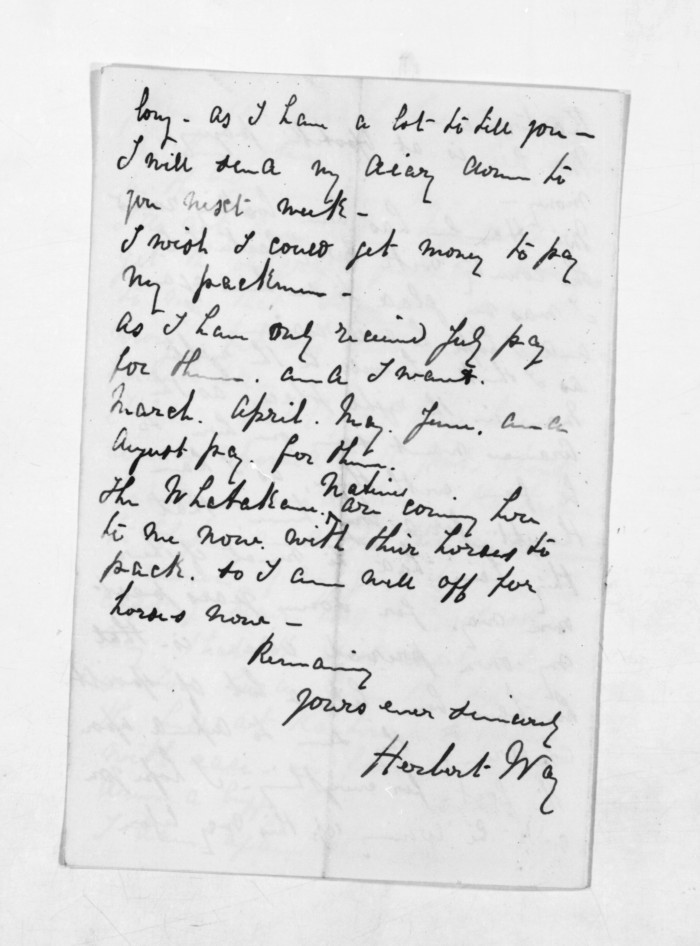 long - as I have a lot to tell you -
I will send my diary down to
you next week -
I wish I could get money to pay
my packmen -
as I have only received July pay
for them. and I want.
March. April. May. June. and
August pay. for them.
The Whakatane. natives are coming here
to me now. with their horses to
pack. so I am well off for
horses now -
Remaining
yours ever sincerely
Herbert Way